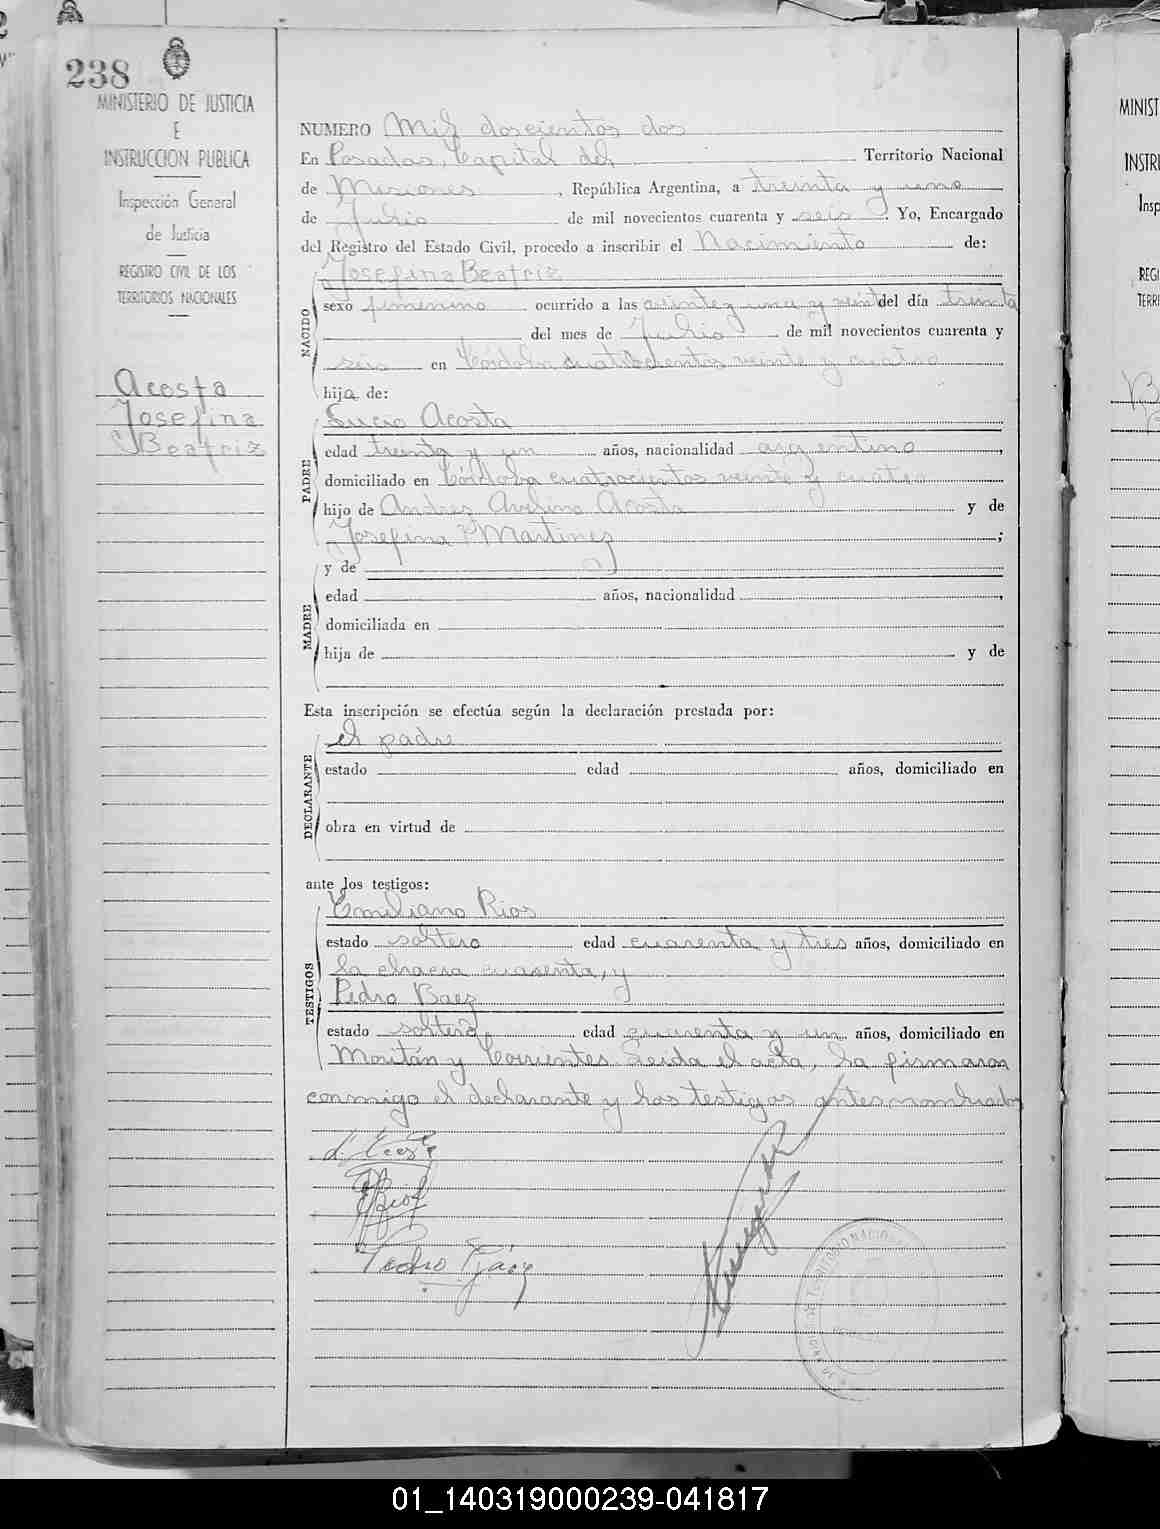 238
MINISTERIO DE JUSTICIA
E
INSTRUCCION PUBLICA
Inspección General
de Justicia
REGISTRO CIVIL DE LOS
TERRITORIOS NACIONALES
Acosta
Josefina
Beatriz
NUMERO Mil doscientos dos
En Posadas, Capital del Territorio Nacional
de Misiones, República Argentina, a treinta y uno
de Julio de mil novecientos cuarenta y seis. Yo, Encargado
del Registro del Estado Civil, procedo a inscribir el Nacimiento de:
Josefina Beatriz
NACIDO
sexo femenino ocurrido a las del día treinta
del mes de Julio de mil novecientos cuarenta y
seis en Córdoba cuatrocientos veinte y cuatro
hija de:
Lucio Acosta
PADRE
edad treinta y un años, nacionalidad argentino,
domiciliado en Córdoba cuatrocientos veinte y cuatro
hijo de Andres Avelino Acosta y de
Josefina Martinez;
y de
MADRE
edad años, nacionalidad,
domiciliada en
hija de y de
Esta inscripción se efectúa según la declaración prestada por:
el padre
DECLARANTE
estado edad años, domiciliado en
obra en virtud de
ante los testigos:
Emiliano Rios
TESTIGOS
estado soltero edad cuarenta y tres años, domiciliado en
la chacra cuarenta, y
Pedro Baez
estado soltero, edad cuarenta y un años, domiciliado en
y Corrientes Leida el acta, la firmaron
conmigo el declarante y los testigos antesnombrados
Pedro Báez
MINIST
INSTRU
Insp
REGI
TERRI
01_140319000239-041817